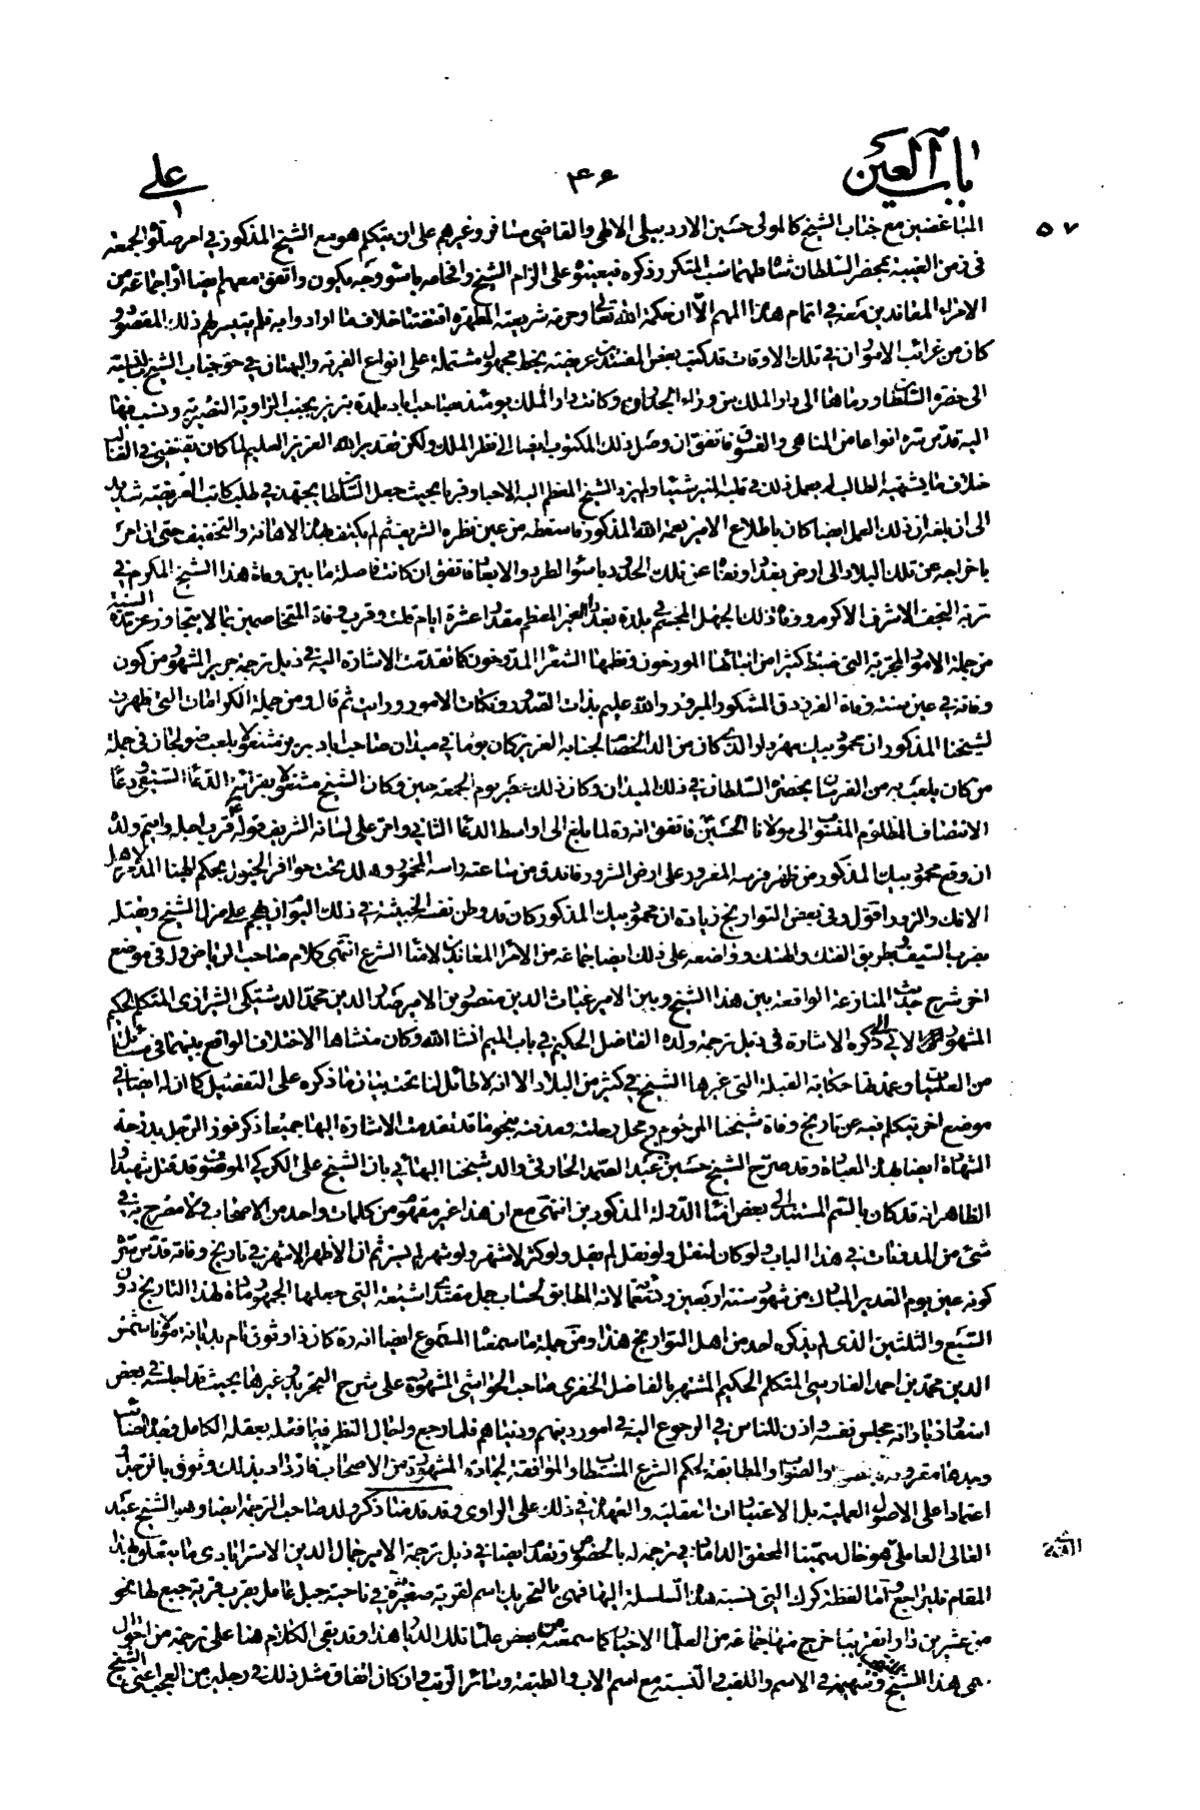 باب العين
۴۶
علي
۵۷
المباغضين مع جناب الشيخ كالمولى حسين الاردبيلى الالهى والقاضى مسافر وغيرهم على ان يتكلم هو مع الشيخ المذكور فى امر صلوة الجمعة
فى زمن الغيبة بمحضر السلطان شاه طهماسب المتكرر ذكره فيعينوه على الزام الشيخ وافحامه باسوء وجه يكون واتفق معهم ايضا اذ ذاك جماعة من
الامراء المعاندين معه فى اتمام هذا المهم الا ان حكمة الله تعالى وحرمة شريعته المطهرة اقتضتا خلاف ما ارادوا به فلم يتيسر لهم ذلك المقصود
كان من غرائب الامور ان فى تلك الاوقات قد كتب بعض المفسدين عريضة بخط مجهول مشتملة على انواع الفرية والبهتان فى حق جناب الشيخ
الى حضرة السلطان ورماها الى دار الملك من وراء الجدران وكانت دار الملك يومئذ بصاحب اباد بلدة تبريز بجنب الزاوية النصرية ونسب فيها
اليه قدس سره انواعا من المناهى والفسوق فاتفق ان وصل ذلك المكتوب ايضا الى نظر الملك ولكن بتقدير الله العزيز العليم لما كان يقتضى فى الغالب
خلاف ما يشتهيه الطالب لم يعمل ذلك فى قلبه المنير شيئا ولم يزد الشيخ المعظم اليه الا حبا وقربا بحيث جعل السلطان يجتهد فى طلب كاتب العريضة شديد
الى ان بلغه ان ذلك العمل ايضا كان باطلاع الامير نعمة الله المذكور فاسقطه من عين نظره الشريف ثم لم يكتف بهذه الاهانة والتخفيف حتى ان امر
باخراجه عن تلك البلاد الى ارض بغداد ونفاه عن تلك الحدود باسوء الطرد والابعاد فاتفق ان كانت فاصلة ما بين وفاة هذا الشيخ المكرم فى
تربة النجف الاشرف الاكرم ووفاة ذلك الجهل المجسم فى بلدة بغداد الغير المعظم مقدار عشرة ايام قلت وقرب وفاة المتخاصمين بما لا يتجاوز عن مدة السنة
من جملة الامور المجربة التى ضبط كثيرا من انبائها المورخون ونظمها الشعراء المدققون كما تقدمت الاشارة اليه فى ذيل ترجمة جرير المشهور من كون
وفاته فى عين سنة وفاة الفرزدق المشكور المبرور والله عليم بذات الصدور ونكات الامور وورايت ثم قال ومن جملة الكرامات التى ظهرت
لشيخنا المذكور ان محمود بيك مهردار الذى كان من الد الخصام لجنابه العزيز كان يوما فى ميدان صاحب اباد تبريز مشغولا بلعب صولجان فى جملة
من كان يلعب به من الفرسان بحضرة السلطان فى ذلك الميدان وكان ذلك عصر يوم الجمعة حين وكان الشيخ مشتغلا بقراءة الدعاء السيفى ودعاء
الانتصاف للمظلوم المنسوب الى مولانا الحسين فاتفق انه ره لما بلغ الى اواسط الدعاء الثانى وامر على لسانه الشريف قوله قرب اجله وايتم ولده
ان وقع محمود بيك المذكور من ظهر فرسه المغرور على ارض الشرور فاندق من ساعته راسه المخمور وهلك تحت حوافر الخيول بحكم الهنا المدمر لاهل
الافك والزور اقول وفى بعض التواريخ زيادة ان محمود بيك المذكور كان قد وطن نفسه الخبيثة فى ذلك اليوم ان يهجم على منزل الشيخ ويقتله
بضرب السيف بطريق الفتك والهتك وواضعه على ذلك ايضا جماعة من الامراء المعاندين لامناء الشرع انتهى كلام صاحب الرياض وله فى موضع
اخر شرح حديث المنازعة الواقعة بين هذا الشيخ وبين الامير غياث الدين منصور بن الامير صدر الدين محمد الدشتكى الشيرازى المتكلم الحكيم
المشهور الاتى الى ذكره الاشارة فى ذيل ترجمة ولده الفاضل الحكيم فى باب الميم انشاء الله وكان منشاها الاختلاف الواقع بينهما فى مسائل
من العلميات وعمدتها حكاية القبلة التى غيرها الشيخ فى كثير من البلاد الا انه لا طائل لنا تحت بيان ما ذكره على التفصيل كما ان له ايضا فى
موضع اخر تكلم فيه عن تاريخ وفاة شيخنا المرحوم ومحل رحلته ومدفنه بنحو ما قد تقدمت الاشارة اليها جميعا ذكر فوز الرجل بدرجة
الشهادة ايضا بهذه العبارة وقد صرح الشيخ حسين بن عبد الصمد الحارثى والد شيخنا البهائى بان الشيخ على الكركى الموصوف قد قتل شهيدا
الظاهر انه قد كان بالسم المستند الى بعض امناء الدولة المذكورين انتهى مع ان هذا غير مفهوم من كلمات واحد من الاصحاب ولا مصرح به فى
شىء من المدونات فى هذا الباب ولو كان لنقل ولو نقل لم يقل ولو كثر لاشتهر ولو شهر لم يستر ثم ان الاظهر الاشهر فى تاريخ وفاته قدس سره
كونه عين يوم الغدير المبارك من شهور سنة اربعين وتسعمائة لانه المطابق لحساب جمل مقتداى شيعة التى جعلها الجمهور مادة لهذا التاريخ دون
السبع والثلثين الذى لم يذكره احد من اهل التواريخ هذا ومن جملة ما سمعنا المسموع ايضا انه ره كان ذا وثوق تام بديانة مولانا شمس
الدين محمد بن احمد الفارسى المتكلم الحكيم المشتهر بالفاضل الخفرى صاحب الحواشى المشهورة على شرح التجريد وغيرها بحيث قد اجلسه فى بعض
اسفاره اياه مجلس نفسه واذن للناس فى الرجوع اليه فى امور دينهم ودنياهم فلما رجع واطال النظر فيما افتاه بعقله الكامل وجد اصابت
وجدها مقرونة والصواب والمطابقة لحكم الشرع المستطاب والموافقة لجادة المشهور من الاصحاب فازداد بذلك وثوقه بالرجل
اعتمادا على الاصول العملية بل الاعتبارات العقلية والعهدة فى ذلك على الراوى وقد قدمنا ذكر ولد صاحب الترجمة ايضا وهو الشيخ عبد
العالى العاملى وهو خال سمينا المحقق الداماد فى ترجمة له بالخصوص وتقدم ايضا فى ذيل ترجمة الامير جمال الدين الاسترابادى ما يتعلق بهذا
المقام فليراجع واما لفظة كرك التى نسبة هذه السلسلة اليها فهى بالتحريك اسم لقرية صغيرة فى ناحية جبل عامل بقرب قرية جبع لها نحو
من عشرين دارا تقريبا خرج منها جماعة من العلماء الاخيار كما سمعته من بعض علماء تلك الديار هذا وقد بقى الكلام هنا على ترجمة من احوال
سمى هذا الشيخ وشبهه فى الاسم واللقب والنسبة مع اسم الاب والطبقة وسائر الوصف وان كان اتفاق مثل ذلك فى رجلين من العجب اعنى الشيخ